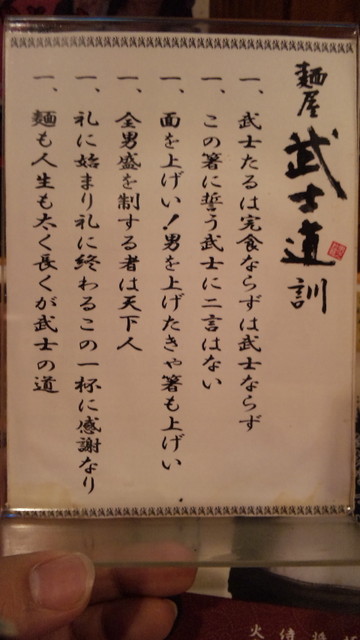 麺屋武士道訓
一、武士たるは完食ならずは武士ならず
一、この箸に誓う武士に二言はない
一、面を上げい！男を上げたきゃ箸も上げい
一、全男盛を制する者は天下人
一、礼に始まり礼に終わるこの一杯に感謝なり
一、麺も人生も太く長くが武士の道